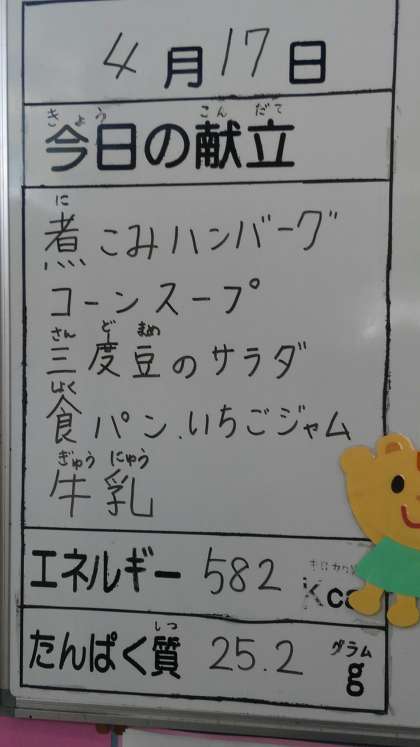 4月17日
きょう こんだて
今日の献立
に
煮こみハンバーグ
コーンスープ
さんどまめ
三度豆のサラダ
しょく
食パン.いちごジャム
ぎゅうにゅう
牛乳
エネルギー 582 Kca
しつ グラム
たんぱく質 25.2 g